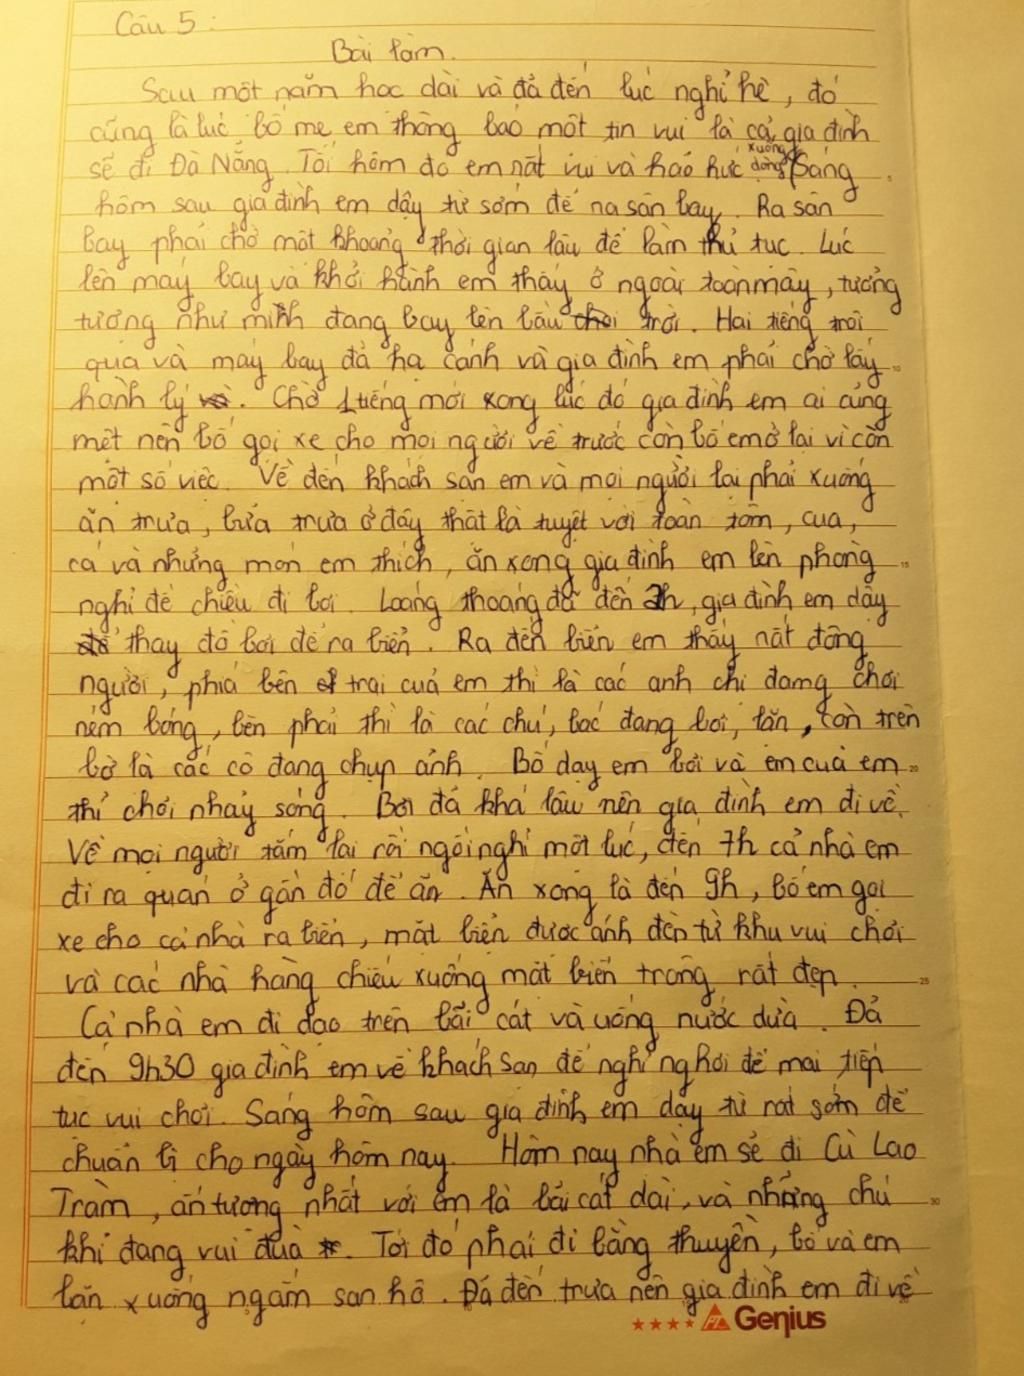 Câu 5:
Bài làm.
Sau một năm học dài và đã đến lúc nghỉ hè, đó
cũng là lúc bố mẹ em thông báo một tin vui là cả gia đình
sẽ đi Đà Nẵng. Tối hôm đó em rất vui và háo hức xuống dòng Sáng
hôm sau gia đình em dậy từ sớm để ra sân bay. Ra sân
bay phải chờ một khoảng thời gian lâu để làm thủ tục. Lúc
lên máy bay và khởi hành em thấy ở ngoài toàn mây, tưởng
tượng như mình đang bay lên bầu trời. Hai tiếng trôi
qua và máy bay đã hạ cánh và gia đình em phải chờ lấy
hành lý. Chờ 1 tiếng mới xong lúc đó gia đình em ai cũng
mệt nên bố gọi xe cho mọi người về trước còn bố em ở lại vì còn
một số việc. Về đến khách sạn em và mọi người lại phải xuống
ăn trưa, bữa trưa ở đây thật là tuyệt vời toàn tôm, cua,
cá và những món em thích, ăn xong gia đình em lên phòng
nghỉ để chiều đi bơi. Loáng thoáng đã đến 2h, gia đình em dậy
thay đồ bơi để ra biển. Ra đến biển em thấy rất đông
người, phía bên trái của em thì là các anh chị đang chơi
ném bóng, bên phải thì là các chú, bác đang bơi, lặn, còn trên
bờ là các cô đang chụp ảnh. Bố dạy em bơi và em của em
thì chơi nhảy sóng. Bơi đã khá lâu nên gia đình em đi về.
Về mọi người tắm lại rồi ngồi nghỉ một lúc, đến 7h cả nhà em
đi ra quán ở gần đó để ăn. Ăn xong là đến 9h, bố em gọi
xe cho cả nhà ra biển, mặt biển được ánh đèn từ khu vui chơi
và các nhà hàng chiếu xuống mặt biển trông rất đẹp.
Cả nhà em đi dạo trên bãi cát và uống nước dừa. Đã
đến 9h30 gia đình em về khách sạn để nghỉ ngơi để mai tiếp
tục vui chơi. Sáng hôm sau gia đình em dậy từ rất sớm để
chuẩn bị cho ngày hôm nay. Hôm nay nhà em sẽ đi Cù Lao
Tràm, ấn tượng nhất với em là bãi cát dài, và những chú
khỉ đang vui đùa. Tới đó phải đi bằng thuyền, bố và em
lặn xuống ngắm san hô. Đã đến trưa nên gia đình em đi về
Genius